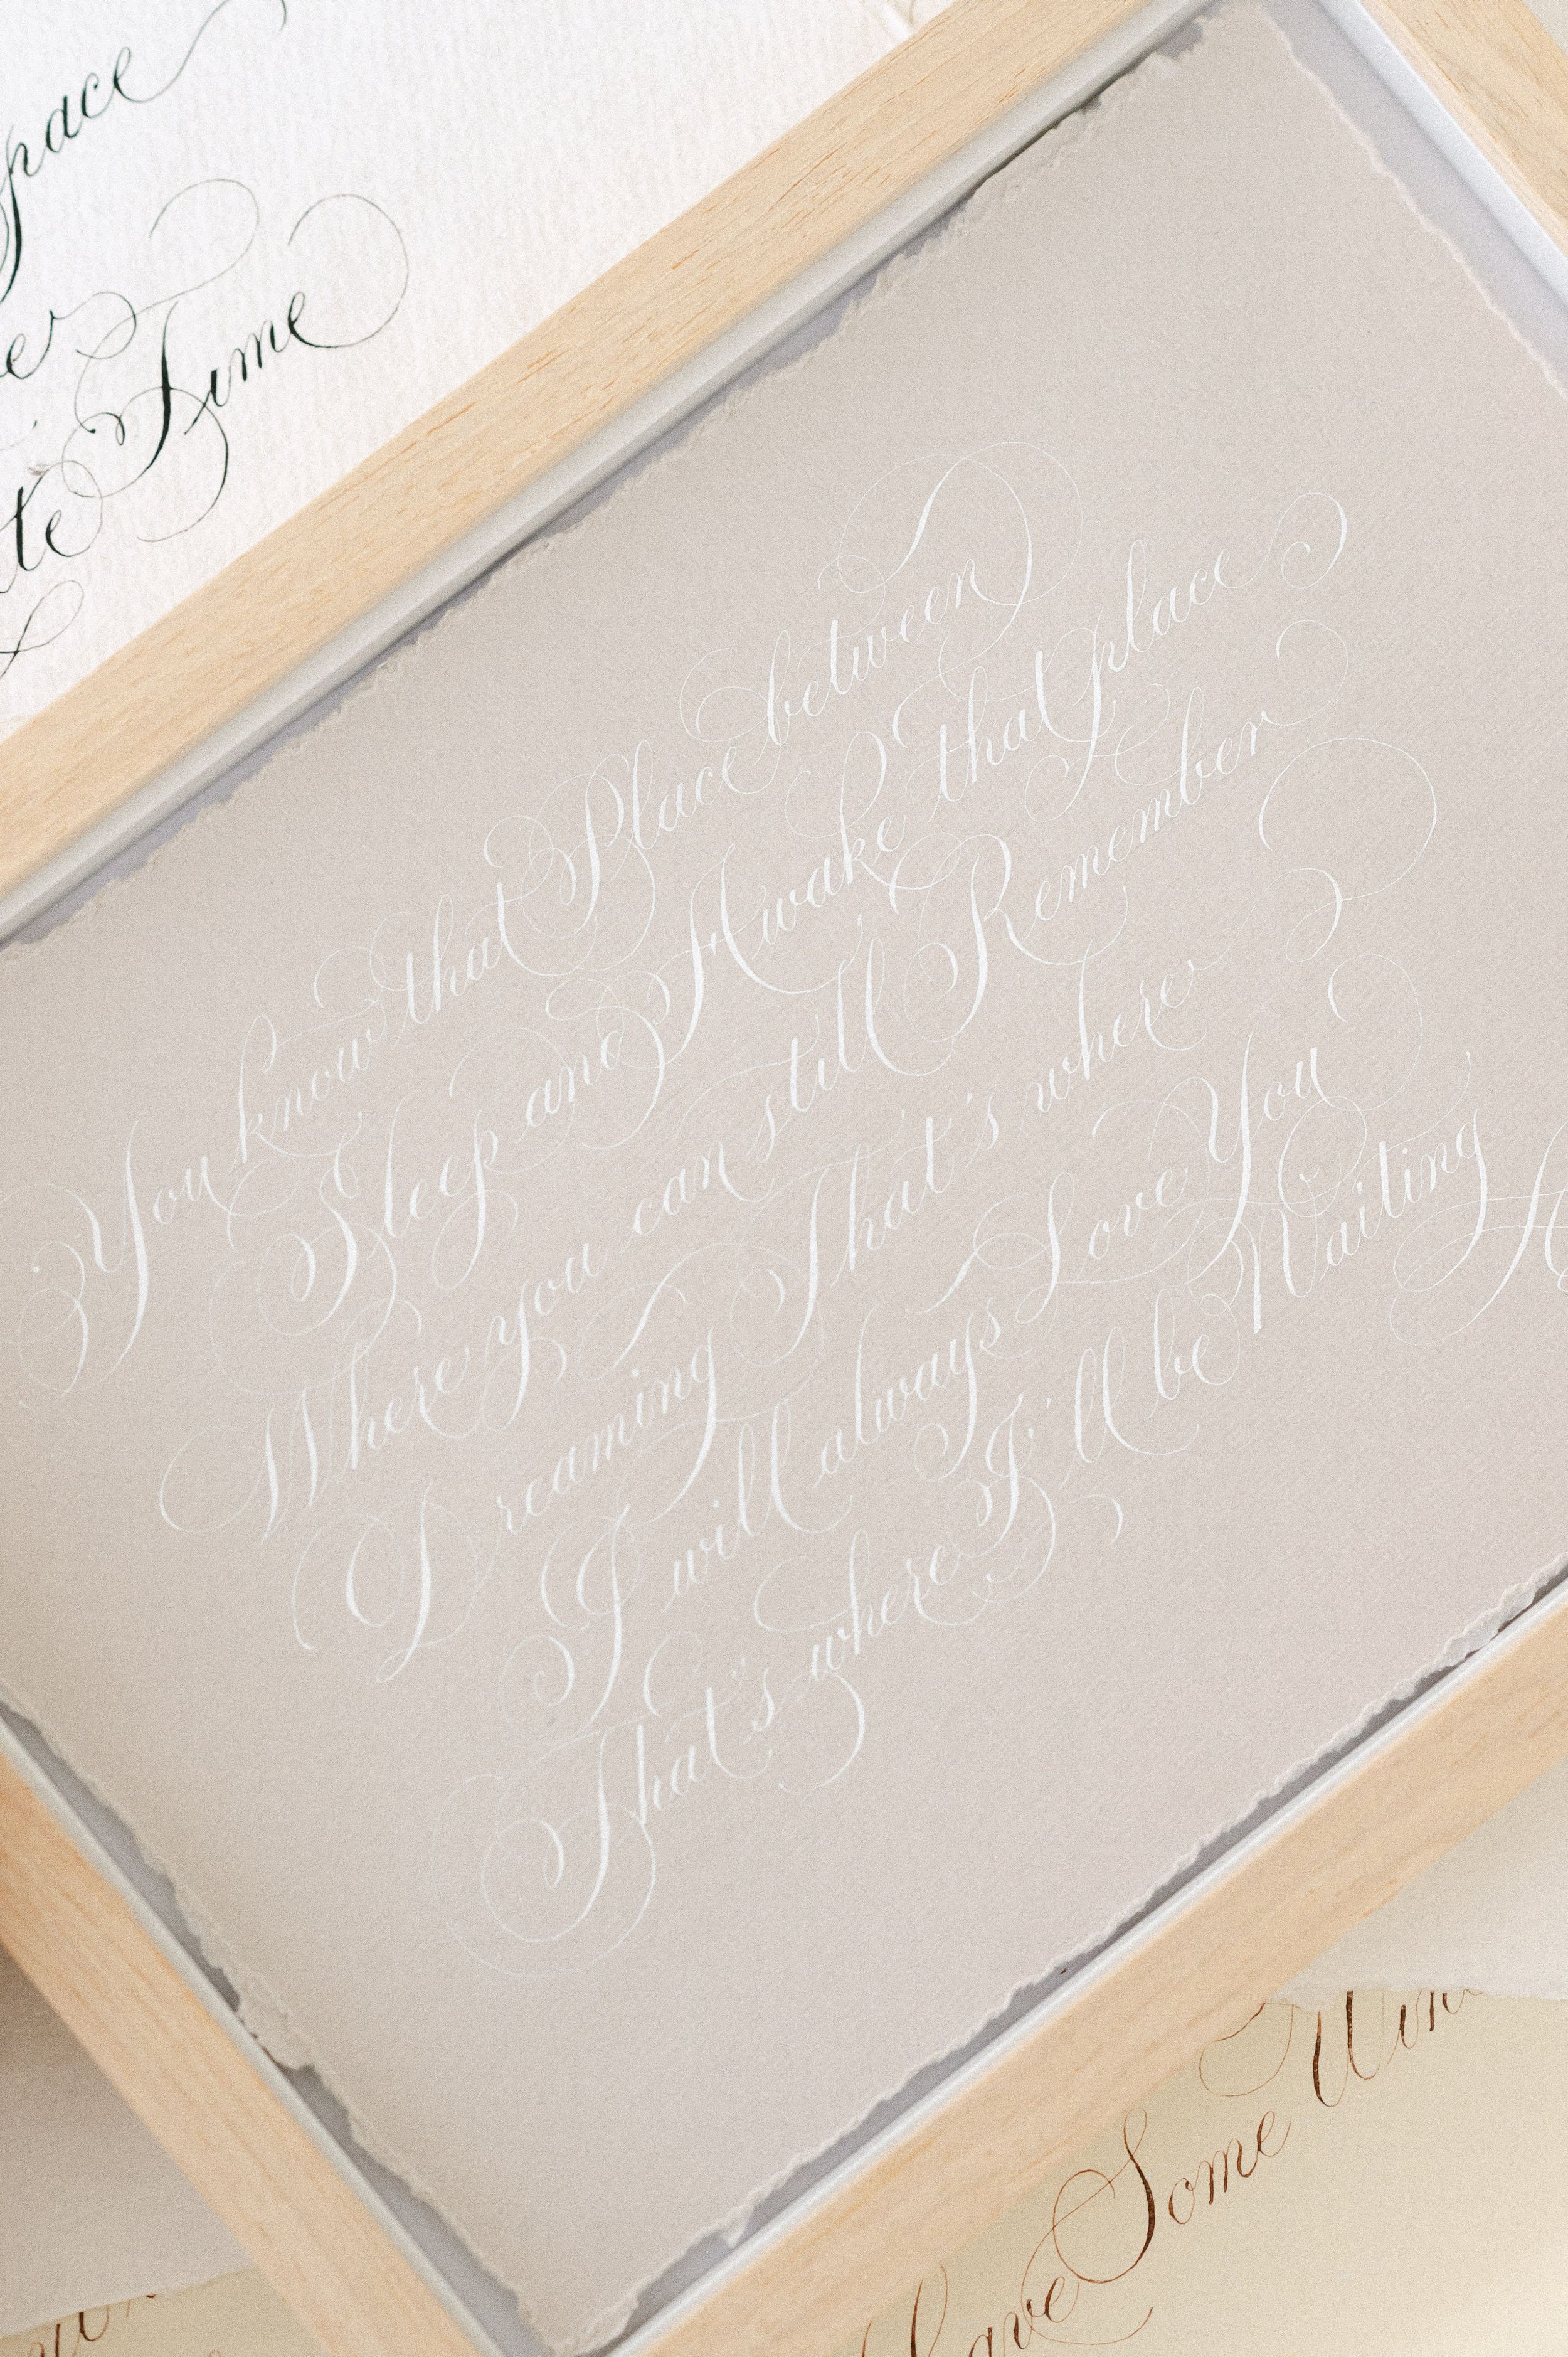 space
Time
You know that Place between
Sleep and Awake that place
Where you can still Remember
Dreaming That's where
I will always Love You
That's where I'll be Waiting
Have Some Wine